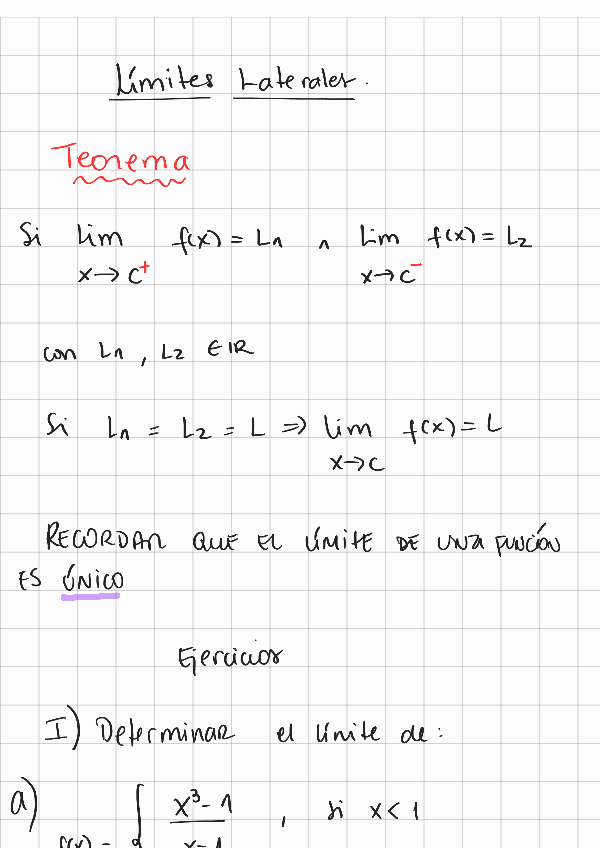 Límites Laterales.
Teorema
Si lim f(x) = L1 ∧ lim f(x) = L2
x→c⁺ x→c⁻
con L1 , L2 ∈ IR
Si L1 = L2 = L ⇒ lim f(x) = L
x→c
RECORDAR QUE EL LÍMITE DE UNA FUNCIÓN
ES ÚNICO
Ejercicios
I) Determinar el límite de:
a) x³ - 1 , si x < 1
f(x) = { x - 1